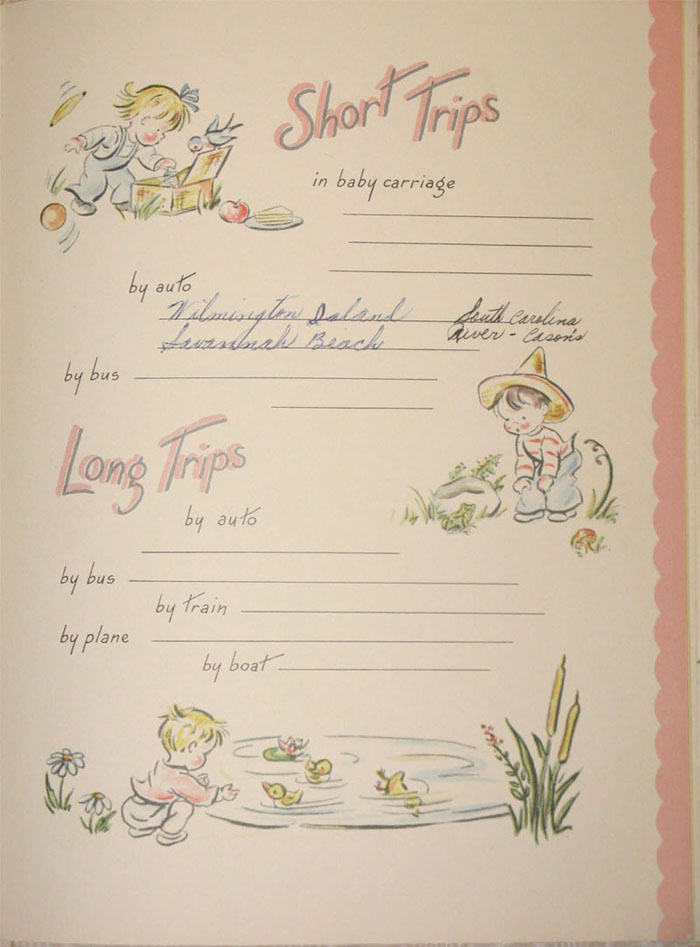 Short Trips
in baby carriage
by auto
Wilmington Island South Carolina
Savannah Beach River - Cason's
by bus
Long Trips
by auto
by bus
by train
by plane
by boat